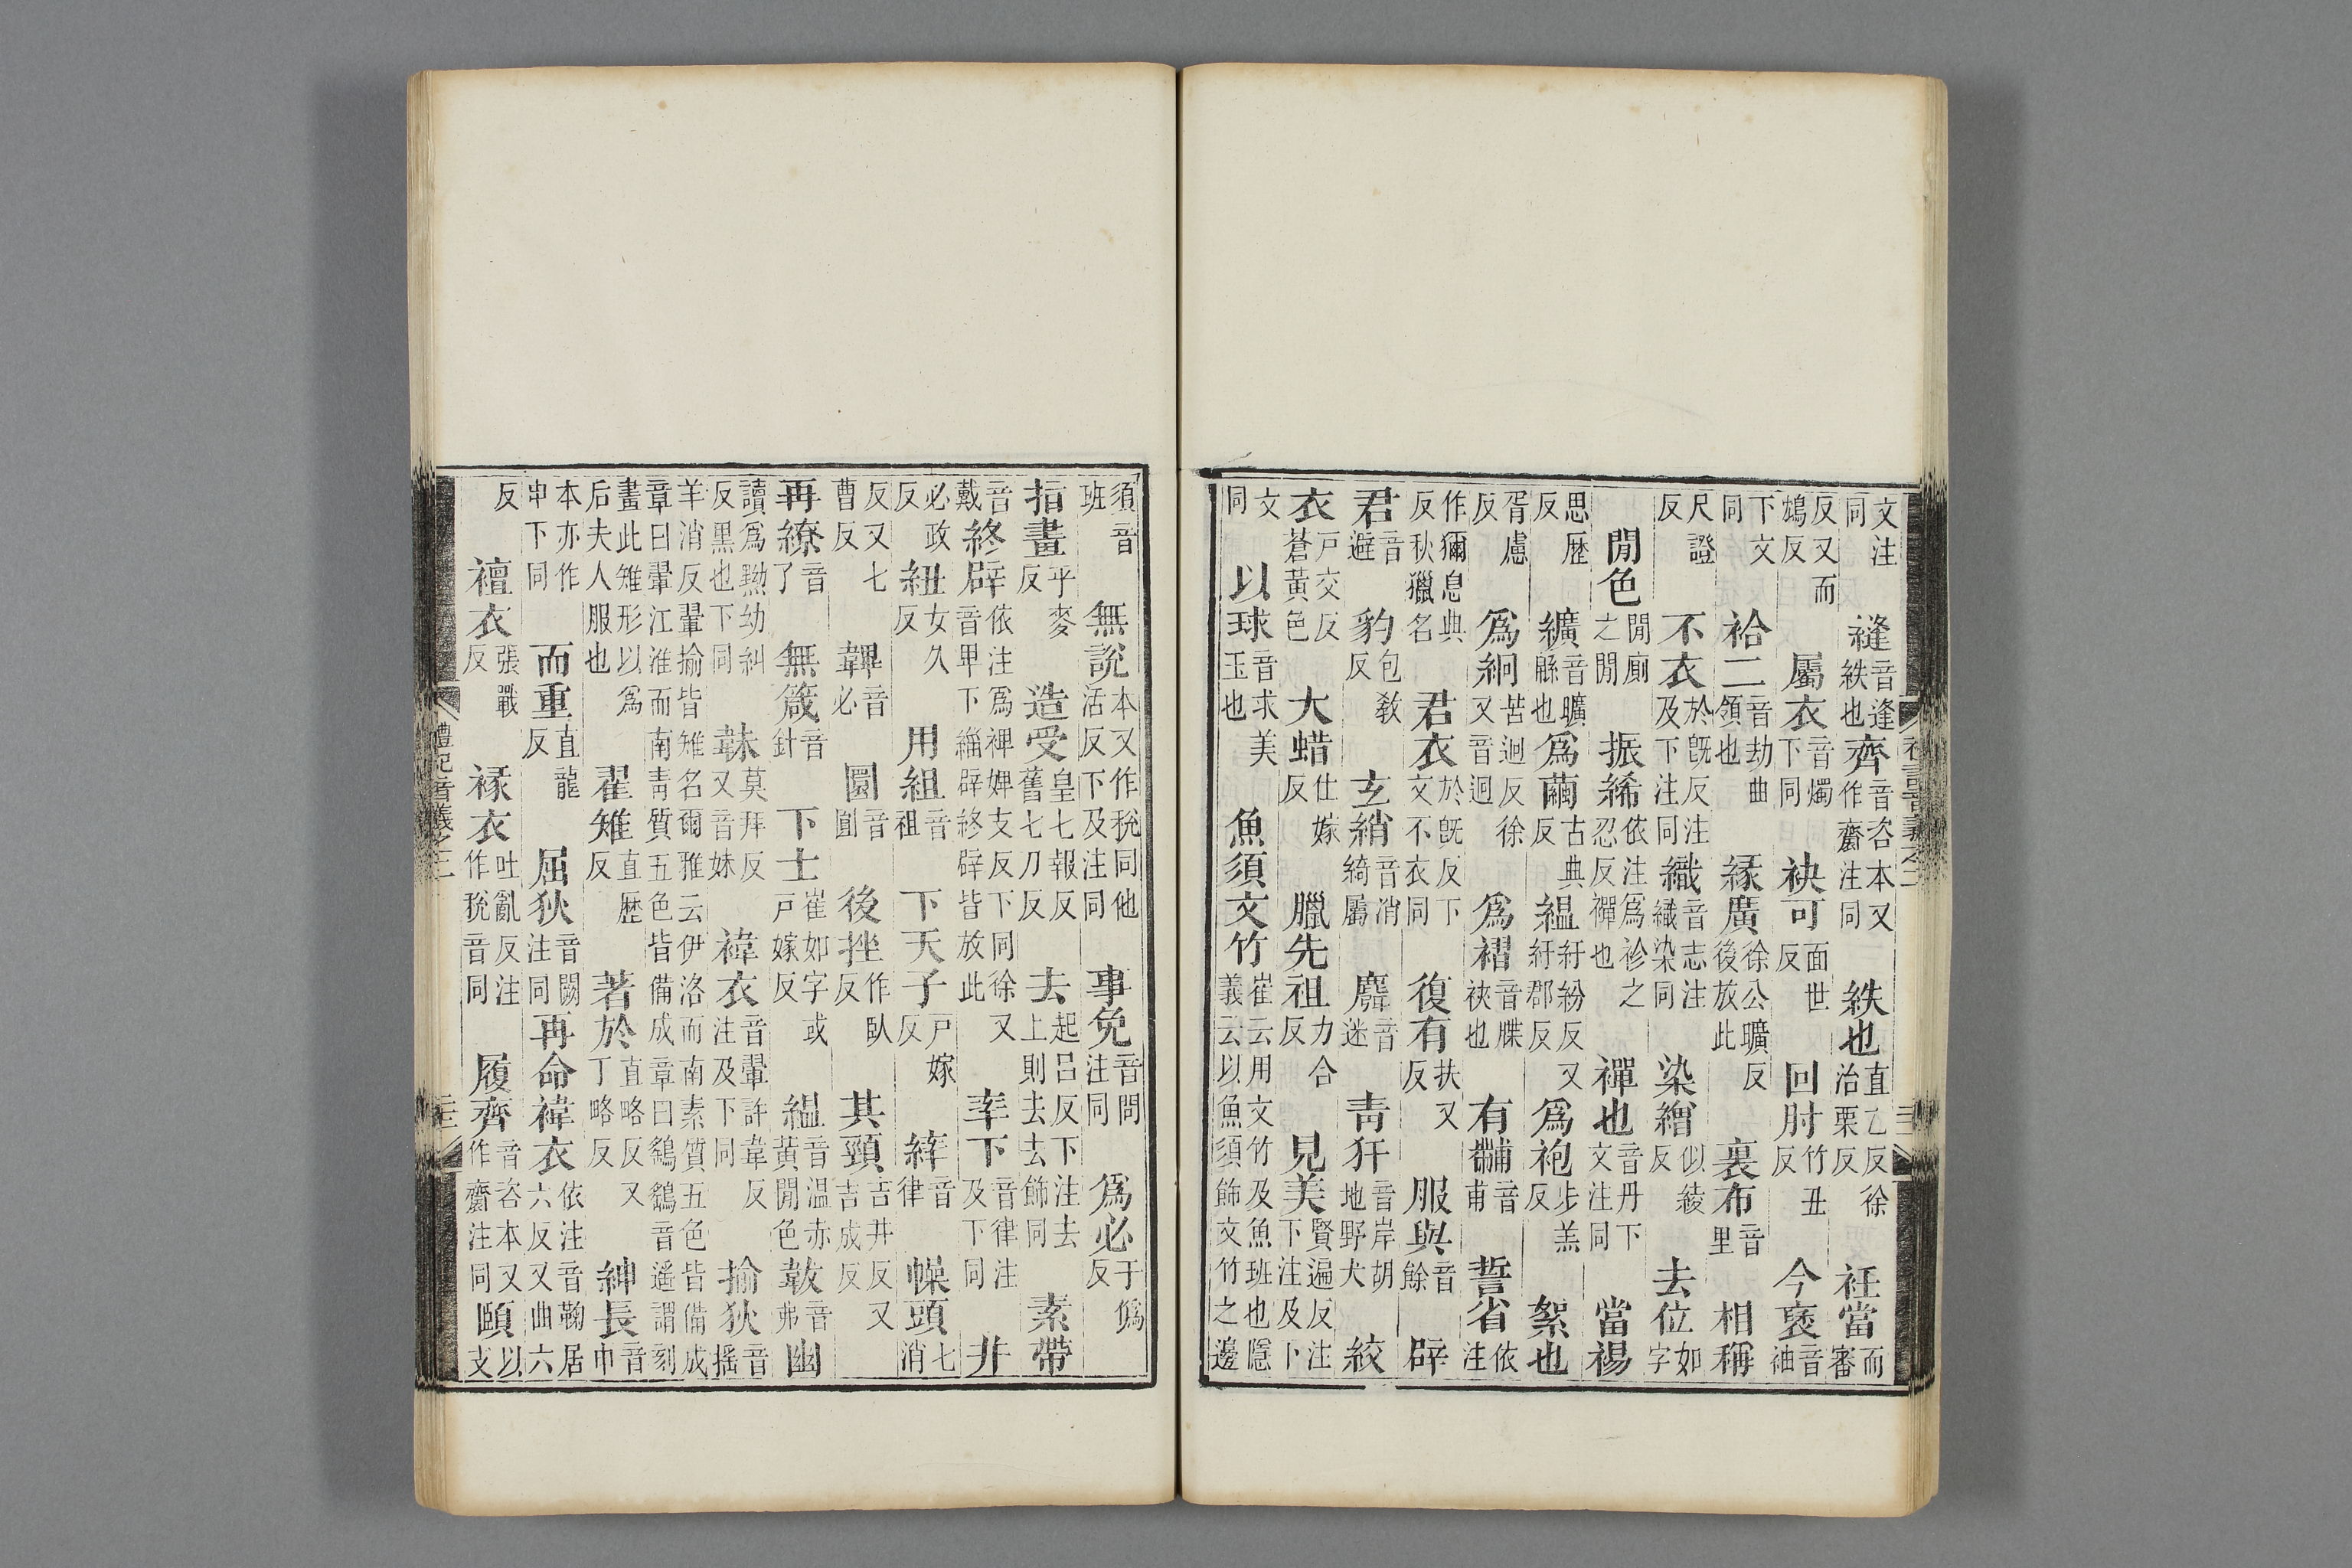 禮記音義之二
文注同縫音逢紩也齊音咨本又作齋注同紩也直乙反徐治栗反衽當而審
反又而鴆反屬衣音燭下同袂可面世反回肘竹丑反今褎音袖
下文同袷二音劫曲領也緣廣徐公曠反後放此裏布音里相稱
尺證反不衣於旣反注及下注同織音志注織染同染繒似綾反去位如字
閒色閒廁之閒振絺依注爲袗之忍反禪也禪也音丹下文注同當裼
思歷反纊音曠緜也爲繭古典反縕紆紛反又紆郡反爲袍步羔反絮也
胥慮反爲絅苦迥反徐又音迥爲褶音牒裌也有黼音甫誓省依注
作獮息典反秋獵名君衣於旣反下文不衣同復有扶又反服與音餘辟
君音避豹包敎反玄綃音消綺屬麛音迷青犴音岸胡地野犬絞
衣戶交反蒼黃色大蜡仕嫁反臘先祖力合反見美賢遍反注下注及下
文同以球音求美玉也魚須文竹崔云用文竹及魚班也隱義云以魚須飾文竹之邊
須音班無說本又作稅同他活反下及注同事免音問注同爲必于僞反
指畫乎麥反造受皇七報反舊七刀反去起呂反下注去上則去去飾同素帶
音戴終辟依注爲裨婢支反下同徐又音卑下緇辟終辟皆放此率下音律注及下同幷
必政反紐女久反用組音祖下天子戶嫁反繂音律幧頭七消
反又七曹反韠音必圜音圓後挫作臥反其頸吉井反又吉成反
再繚音了無箴音針下士崔如字或戶嫁反縕音溫赤黃閒色韍音弗幽
讀爲黝幼糾反黑也下同韎莫拜反又音妹褘衣音翬許韋反注及下同揄狄音搖
羊消反翬揄皆雉名爾雅云伊洛而南素質五色皆備成章曰翬江淮而南靑質五色皆備成章曰鷂鷂音遙謂刻
畫此雉形以爲后夫人服也翟雉直歷反著於直略反又丁略反紳長音申
本亦作申下同而重直龍反屈狄音闕注同再命褘衣依注音鞠居六反又曲六
反襢衣張戰反褖衣吐亂反注作稅音同履齊音咨本又作齋注同頤以支
禮記音義之二